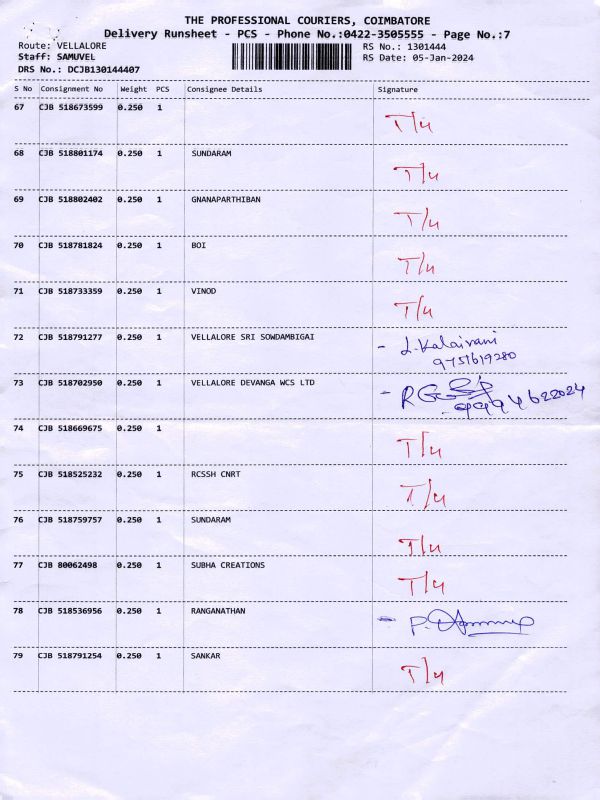 THE PROFESSIONAL COURIERS, COIMBATORE
Delivery Runsheet - PCS - Phone No.:0422-3505555 - Page No.:7
Route: VELLALORE RS No.: 1301444
Staff: SAMUVEL RS Date: 05-Jan-2024
DRS No.: DCJB130144407
S No Consignment No Weight PCS Consignee Details Signature
67 CJB 518673599 0.250 1 T/4
68 CJB 518801174 0.250 1 SUNDARAM T/4
69 CJB 518802402 0.250 1 GNANAPARTHIBAN T/4
70 CJB 518781824 0.250 1 BOI T/4
71 CJB 518733359 0.250 1 VINOD T/4
72 CJB 518791277 0.250 1 VELLALORE SRI SOWDAMBIGAI - J.Kalaivani
9751619280
73 CJB 518702950 0.250 1 VELLALORE DEVANGA WCS LTD
9994622024
74 CJB 518669675 0.250 1 T/4
75 CJB 518525232 0.250 1 RCSSH CNRT T/4
76 CJB 518759757 0.250 1 SUNDARAM T/4
77 CJB 80062498 0.250 1 SUBHA CREATIONS T/4
78 CJB 518536956 0.250 1 RANGANATHAN - P.
79 CJB 518791254 0.250 1 SANKAR T/4